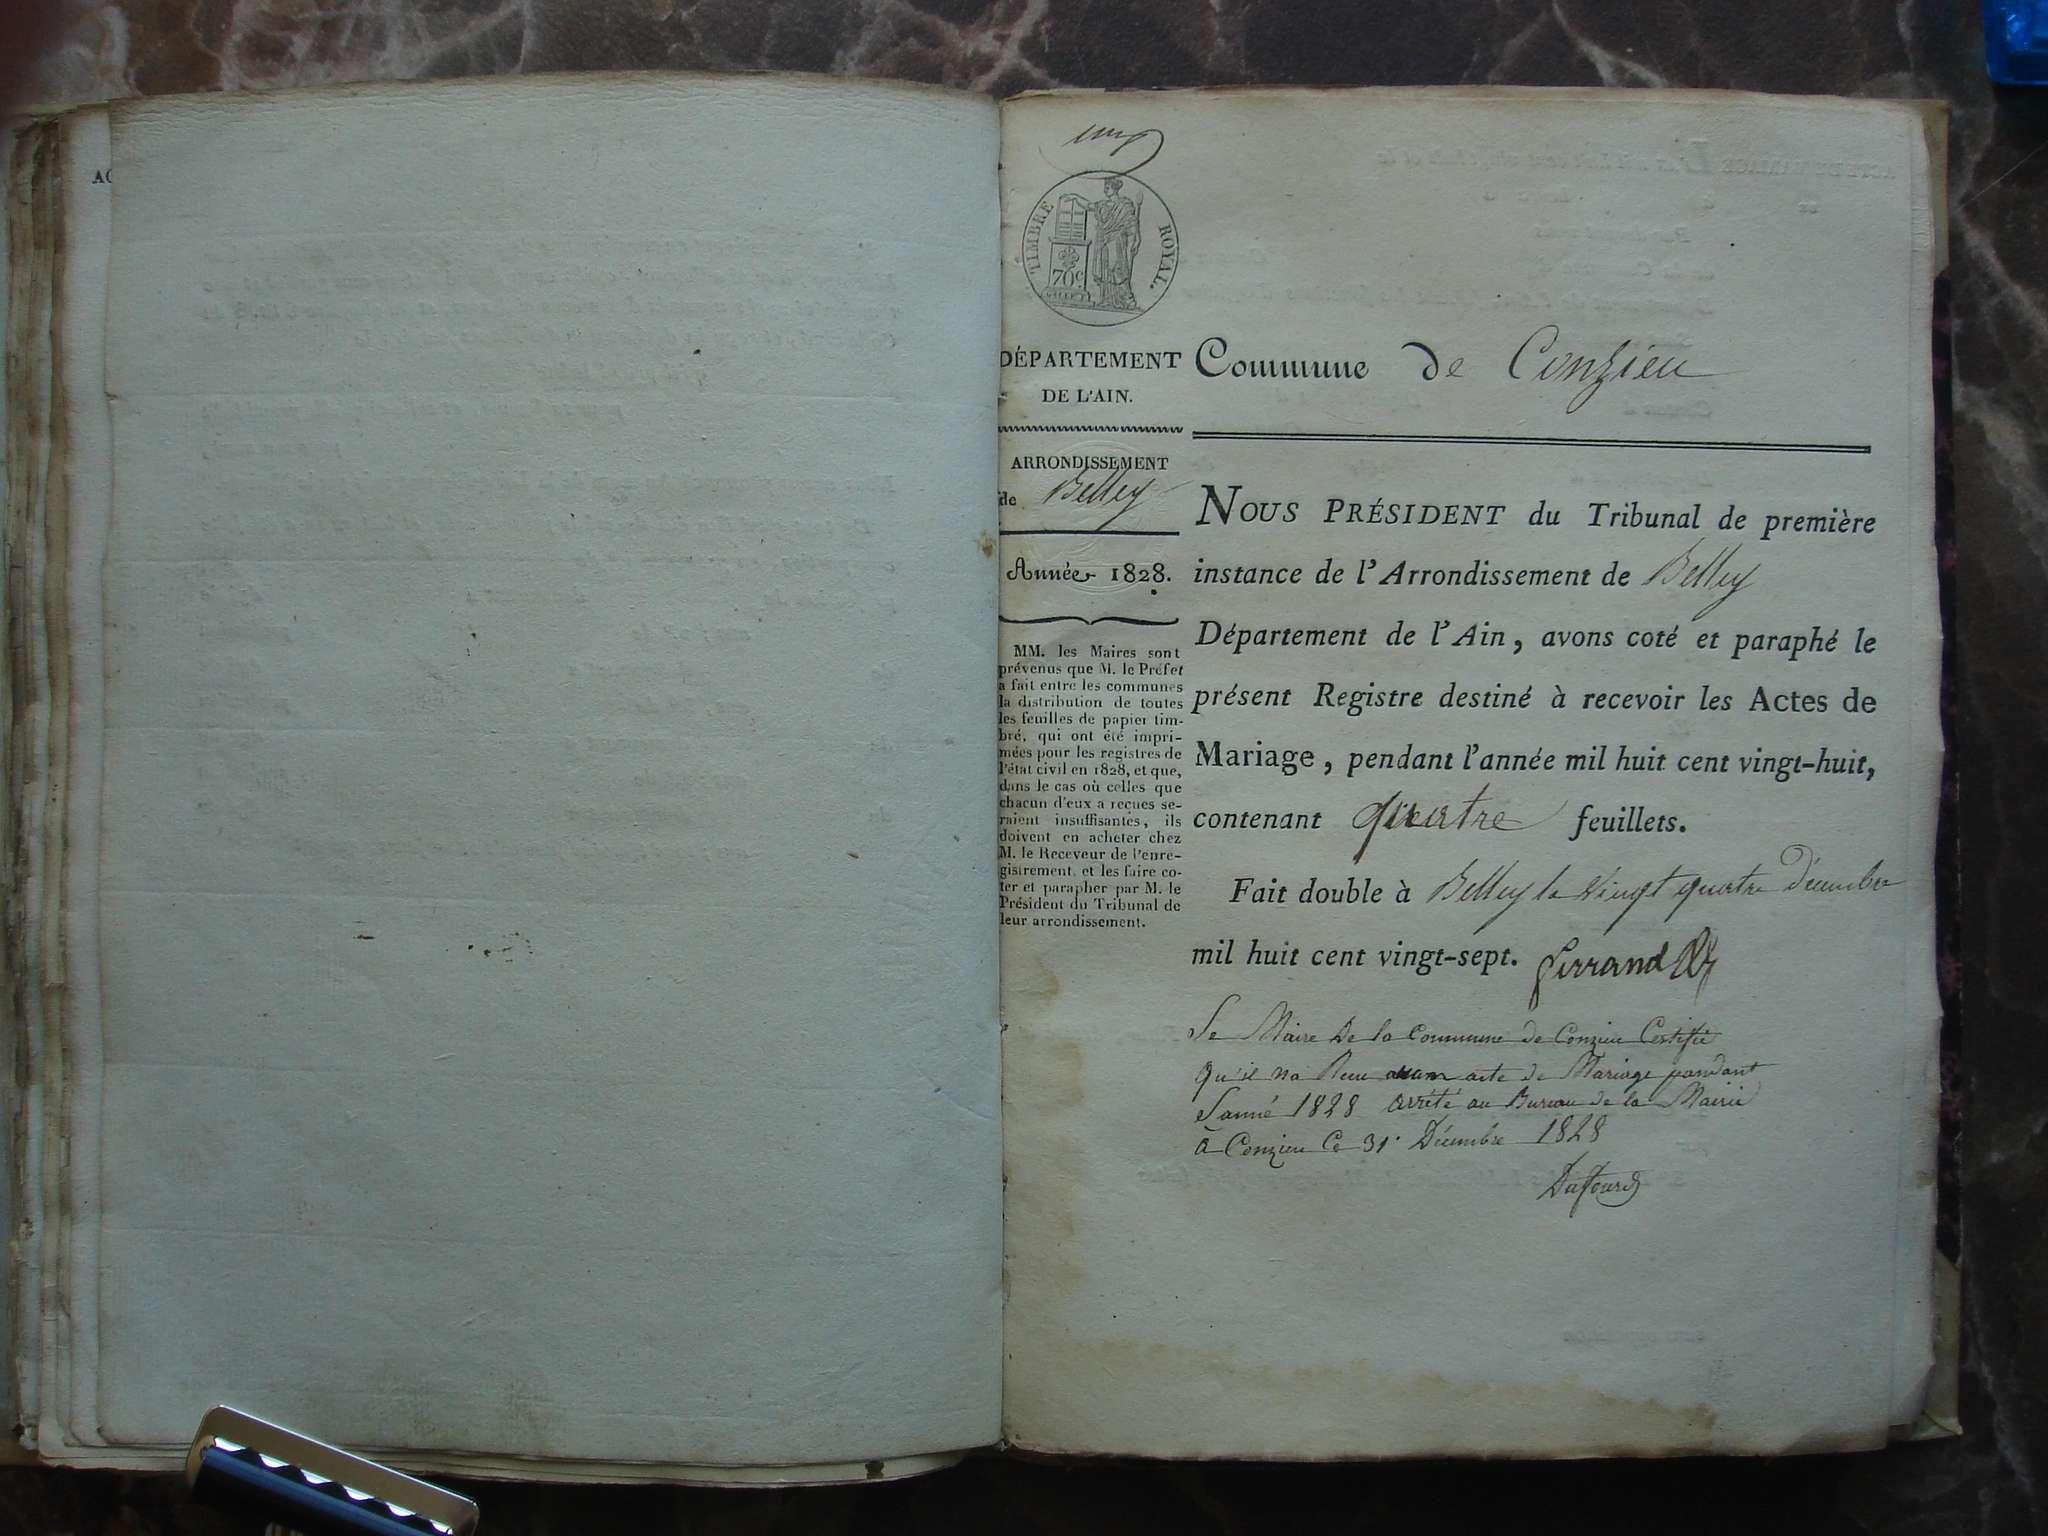 TIMBRE ROYAL.
70c
DÉPARTEMENT
DE L'AIN.
ARRONDISSEMENT
de Belley
Année 1828.
MM. les Maires sont
prévenus que M. le Préfet
a fait entre les communes
la distribution de toutes
les feuilles de papier tim-
bré, qui ont été impri-
mées pour les registres de
l'état civil en 1828, et que,
dans le cas où celles que
chacun d'eux a reçues se-
raient insuffisantes, ils
doivent en acheter chez
M. le Receveur de l'enre-
gistrement, et les faire co-
ter et parapher par M. le
Président du Tribunal de
leur arrondissement.
Commune de Conzieu
NOUS PRÉSIDENT du Tribunal de première
instance de l'Arrondissement de Belley
Département de l'Ain, avons coté et paraphé le
présent Registre destiné à recevoir les Actes de
Mariage, pendant l'année mil huit cent vingt-huit,
contenant quatre feuillets.
Fait double à Belley le vingt quatre Décembre
mil huit cent vingt-sept.
Le Maire De la Commune de Conzieu Certifie
Qu'il na Recu aucun acte de Mariage pandant
Lanné 1828 arrété au Bureau de la Mairie
à Conzieu Ce 31 Décembre 1828
Dufour
AC